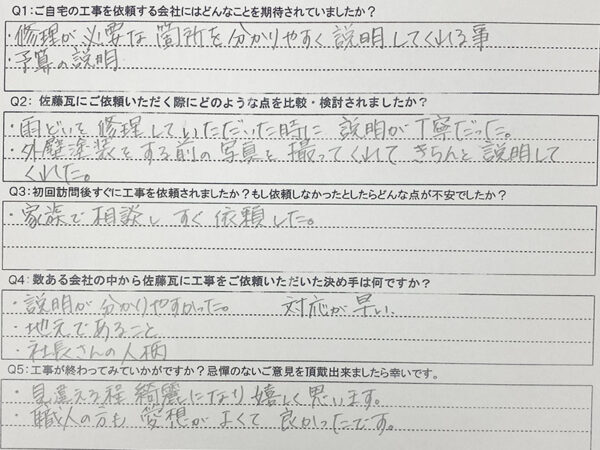 Q1：ご自宅の工事を依頼する会社にはどんなことを期待されていましたか？
・修理が必要な箇所を分かりやすく説明してくれる事
・予算の説明
Q2： 佐藤瓦にご依頼いただく際にどのような点を比較・検討されましたか？
・雨どいを修理していただいた時に 説明が丁寧だった。
・外壁塗装をする前の写真を撮ってくれてきちんと説明して
くれた。
Q3：初回訪問後すぐに工事を依頼されましたか？もし依頼しなかったとしたらどんな点が不安でしたか？
・家族で相談し すぐ依頼した。
Q4：数ある会社の中から佐藤瓦に工事をご依頼いただいた決め手は何ですか？
・説明が分かりやすかった。 対応が早い。
・地元であること
・社長さんの人柄
Q5：工事が終わってみていかがですか？忌憚のないご意見を頂戴出来ましたら幸いです。
・見違える程 綺麗になり 嬉しく思います。
・職人の方も 愛想がよくて 良かったです。